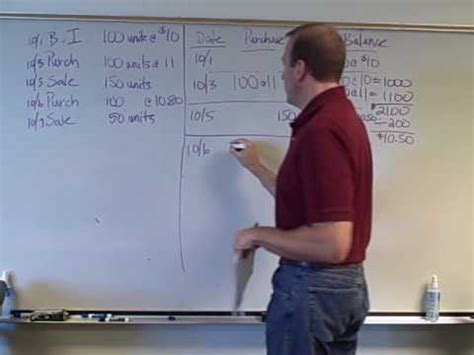 10/1 B.I 100 units @ $10
10/3 Purch 100 units @ 11
10/5 Sale 150 units
10/6 Purch 100 @ 10.80
10/7 Sale 50 units
Date Purchase Balance
10/1 @ 10
10/3 100 @ 11 @ 10 = 1000
@ 11 1100
10/5 150 2100
200
10/6 $10.50